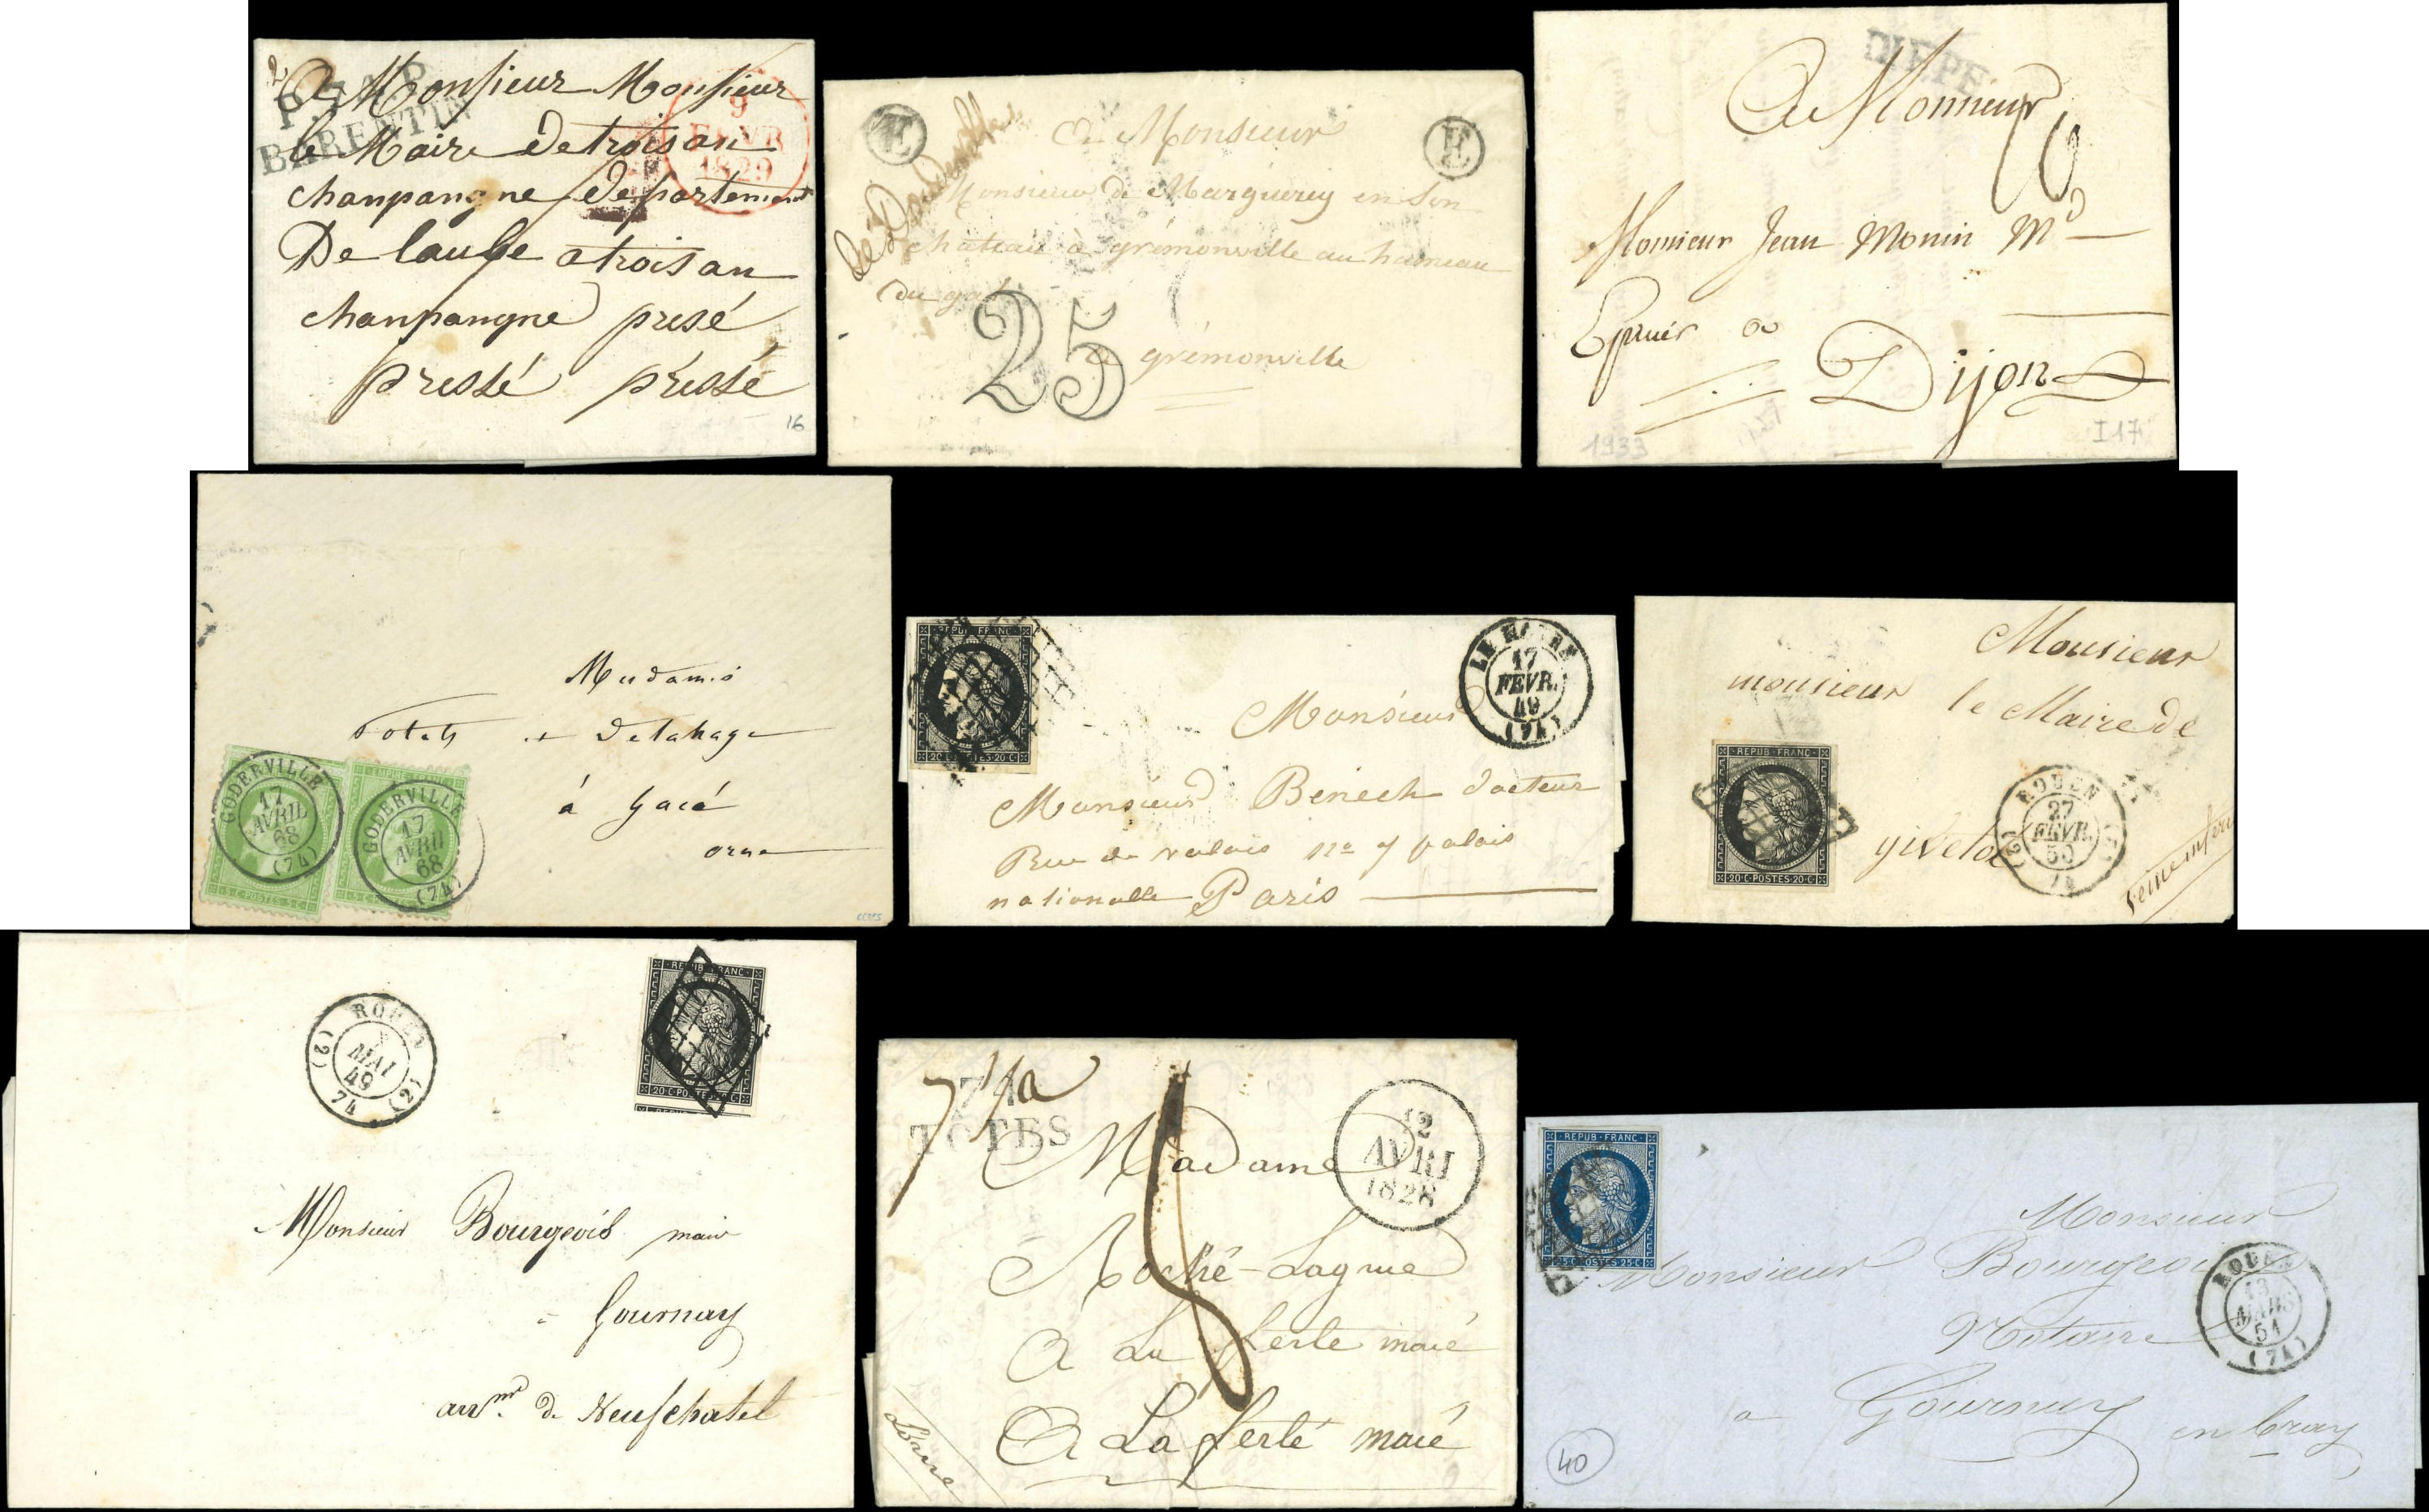 2
P.74.P.
BARENTIN
9
FEVR
1829
A Monsieur Monsieur
le Maire de troisan
chanpangne departement
De laube a troisan
chanpangne presé
pressé pressé
16
E
E
de Doudeville
A Monsieur
Monsieur de Marguerey en Son
chateau à grémonville au hameau
du
25
à grémonville
DIEPPE
A Monsieur
Monsieur Jean Monin Md
Epicier a
Dijon
1933
I17
Madame
Delahaye
à Gacé
orne
GODERVILLE
17
AVRIL
68
(74)
5 C POSTES 5 C
EMPIRE FRANC
GODERVILLE
17
AVRIL
68
(74)
REPUB FRANC
20 C POSTES 20 C
LE HAVRE
17
FEVR.
49
(74)
Monsieur
Monsieur Benech docteur
Rue de valois no 7 palais
nationalle Paris
Monsieur
monsieur le Maire de
yivetot
REPUB FRANC
20 C POSTES 20 C
ROUEN
27
FEVR.
50
74
Seine inferi
ROUEN
(2) (2)
MAI
49
74
REPUB FRANC
20 C POSTES 20 C
Monsieur Bourgeois maire
à Gournay
arrmt de Neufchatel
74
TOTES
12
AVRI
1828
Madame
Roché-Lagrue
A La ferté macé
A La ferté macé
Lorne
8
REPUB FRANC
25 C POSTES 25 C
Monsieur
Monsieur Bourgeois
Notaire
a Gournay en bray
ROUEN
13
MARS
51
(74)
40